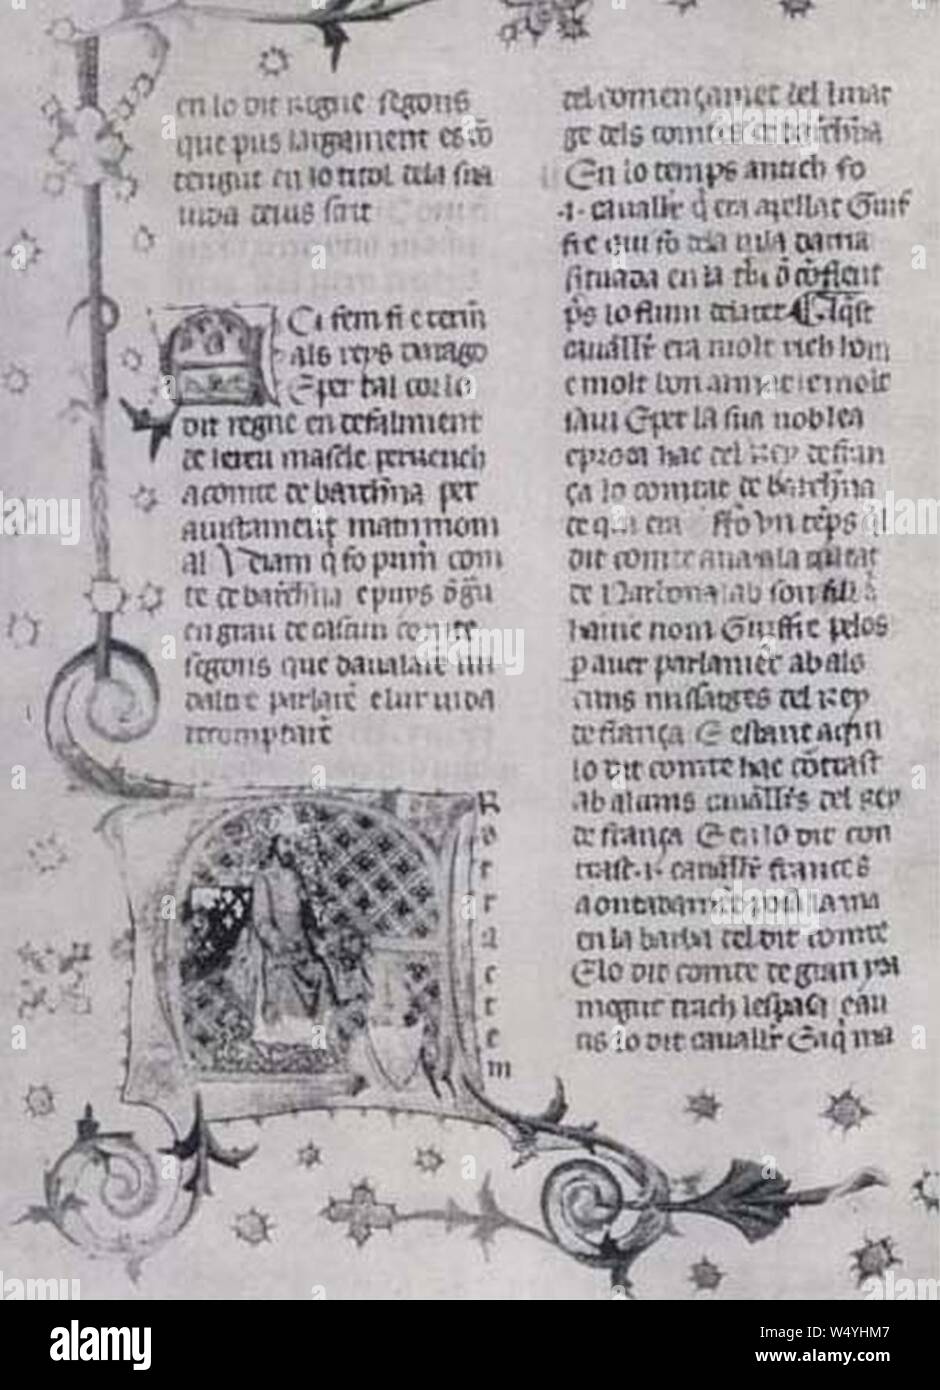 en lo dit regne segons
que pus largament es cõ
tengut en lo titol dela sua
vida deius scrit
Aci fem fi e term̃
als reys darago
E per tal cor lo
dit regne en defalliment
de hereu mascle peruench
a comte de barchñna per
aiustament matrimoni
al diam q̃ fo prim̃ com
te de barchñna e puys
en grau de cascun comte
segons que daualare un
daltre parlare e lur vida
recomptare
R
o
r
r
a
e
t
e
m
del començamet del linat
ge dels comtes de barchñna
En lo temps antich fo
.i. cauallr̃ q̃ era apellat Guif
fre qui fo dela vila darria
situada en la
ps lo flum de tet Aq̃st
cauallr̃ era molt rich hom
e molt bon armat e molt
saui E per la sua noblea
e proea hac del Rey de fran
ça lo comtat de barchñna
de q̃ era fo vn temps q̃l
dit comte ana ala ciutat
de Narbona ab son fill
hauie nom Guiffre pelos
p auer parlamet ab als
cuns missatges del Rey
de frança E estant aqui
lo dit comte hac cõtrast
ab alcuns cauallrs del Rey
de frança E en lo dit con
trast .i. cauallr̃ frances
en la barba del dit comte
E lo dit comte de gran
mogut trach lespasa e au
cis lo dit cauallr̃ E aq̃ ma
alamy
Image ID: W4YHM7
www.alamy.com